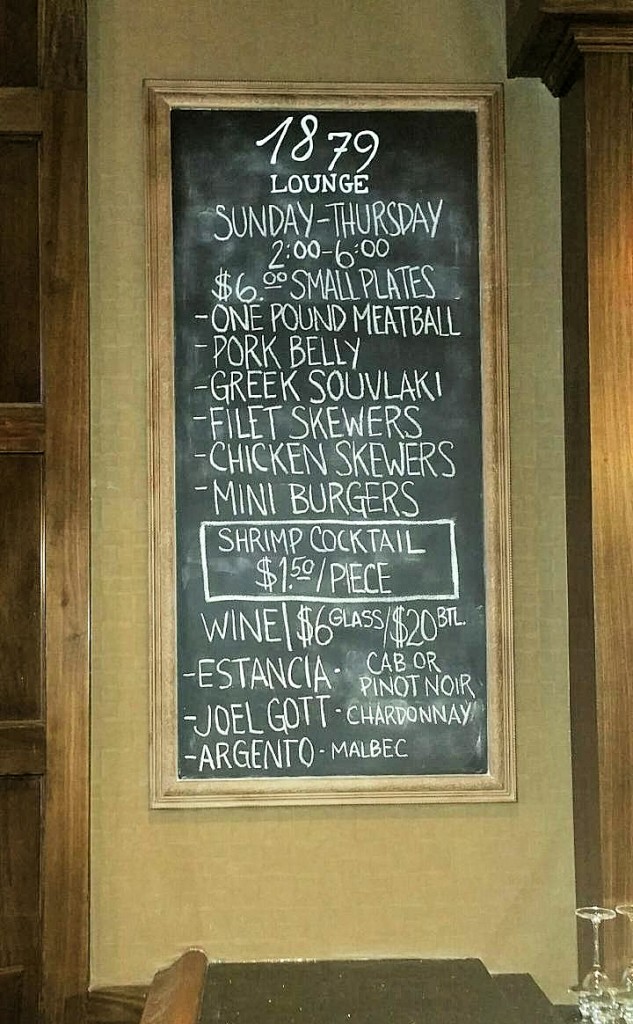 1879
LOUNGE
SUNDAY-THURSDAY
2:00-6:00
$6.00 SMALL PLATES
-ONE POUND MEATBALL
-PORK BELLY
-GREEK SOUVLAKI
-FILET SKEWERS
-CHICKEN SKEWERS
-MINI BURGERS
SHRIMP COCKTAIL
$1.50/PIECE
WINE | $6 GLASS/$20 BTL.
-ESTANCIA - CAB OR
PINOT NOIR
-JOEL GOTT - CHARDONNAY
-ARGENTO - MALBEC